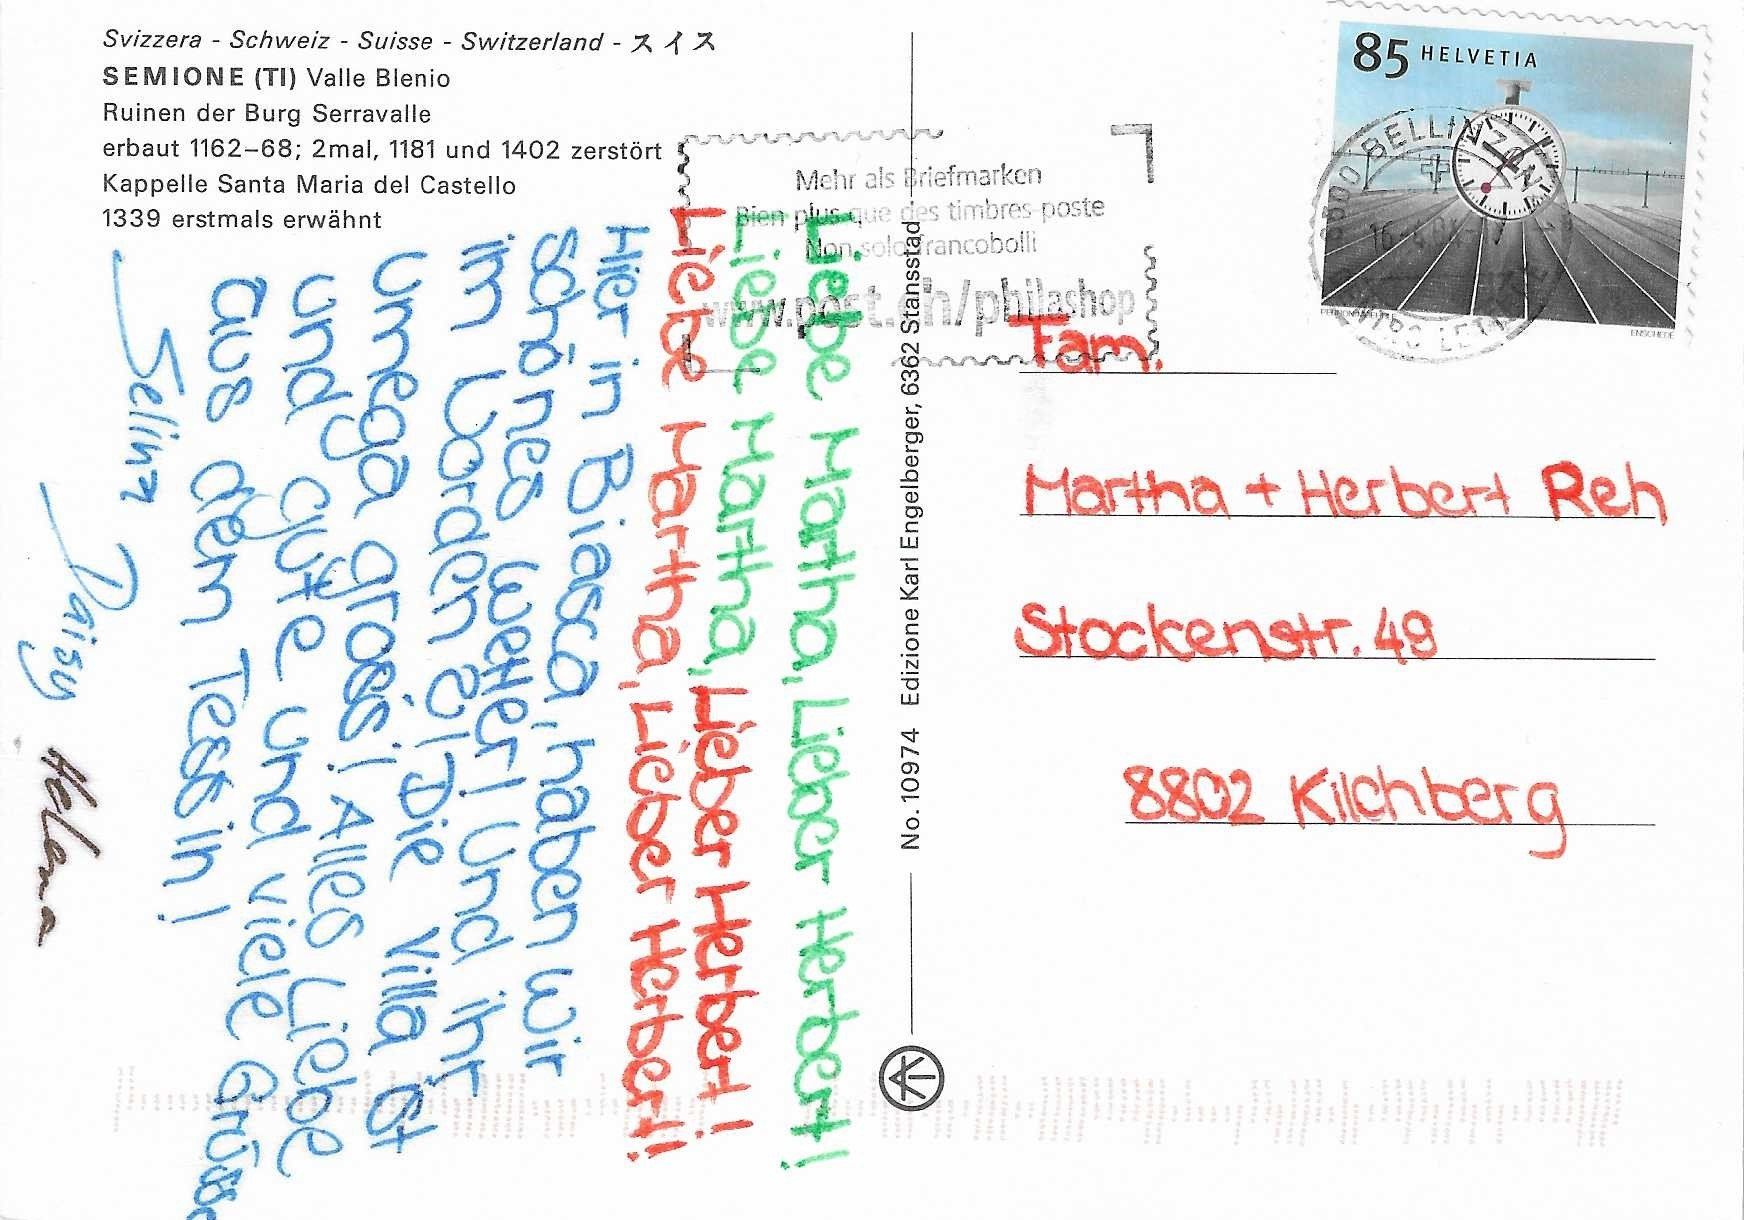 Svizzera - Schweiz - Suisse - Switzerland - スイス
SEMIONE (TI) Valle Blenio
Ruinen der Burg Serravalle
erbaut 1162–68; 2mal, 1181 und 1402 zerstört
Kappelle Santa Maria del Castello
1339 erstmals erwähnt
Liebe Martha, Lieber Herbert!
Liebe Martha, Lieber Herbert!
Liebe Martha, Lieber Herbert!
Hier in Biasca, haben wir
schönes wetter! Und ihr
im Norden?! Die Villa ist
umega gross! Alles Liebe
und gute und viele Grüsse
aus dem Tessin!
Selina
Daisy
Helena
No. 10974 Edizione Karl Engelberger, 6362 Stansstad
Mehr als Briefmarken
Bien plus que des timbres-poste
Non solo francobolli
www.post.ch/philashop
85 HELVETIA
ENSCHEDE
6500 BELLINZONA
Fam.
Martha + Herbert Reh
Stockenstr. 49
8802 Kilchberg